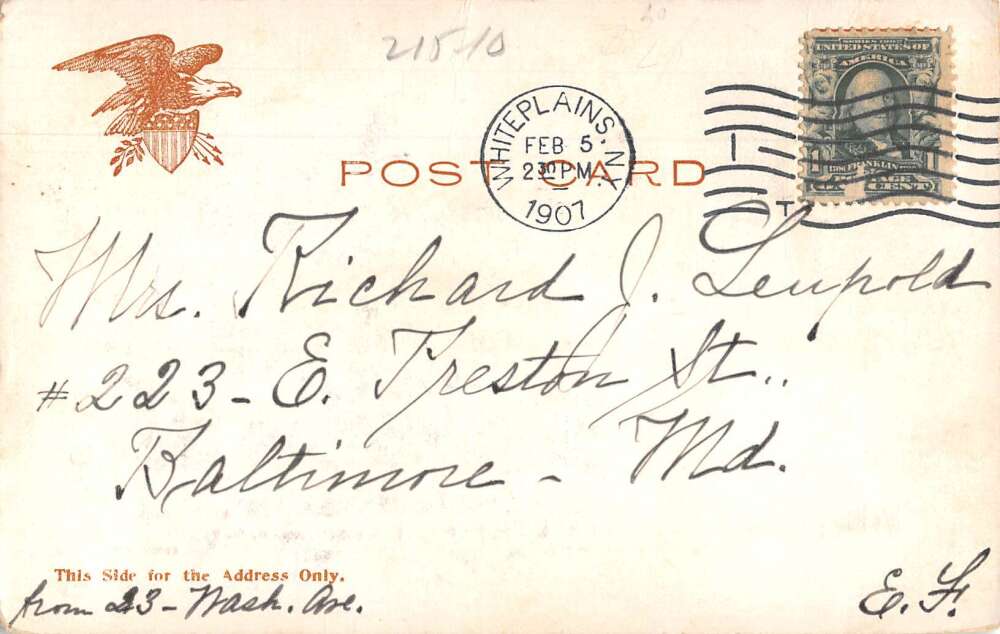 21510
SERIES 1902
UNITED STATES OF
AMERICA
1 FRANKLIN 1
CENT
WHITE PLAINS. N.Y.
FEB 5
2 30 PM
1907
POST CARD
Mrs. Richard J. Leupold
#223 - E. Preston St.,
Baltimore - Md.
This Side for the Address Only.
from 23 - Wash. Ave.
E. F.